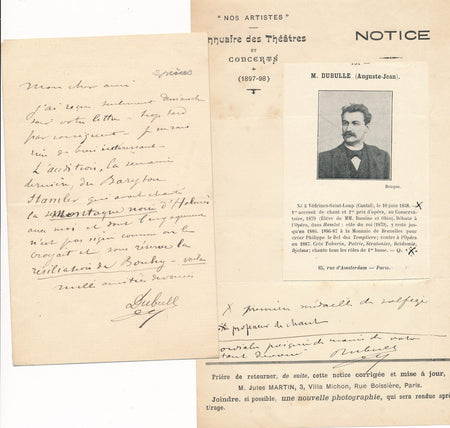 Mon cher ami
J'ai reçu seulement Dimanche
soir votre lettre – trop tard
par conséquent – je ne sais
rien de bien intéressant.
L'audition, la semaine
dernière, du Baryton
Stamler qui avait chanté
la Montagne noire d'Holmès
aux
n'est pas signé comme on le
croyait et sous réserve la
résiliation de Bouhy – voilà
mille amitiés dévouées
Dubull
"NOS ARTISTES"
Annuaire des Théâtres
ET
CONCERTS
(1897-98)
NOTICE
M. DUBULLE (Auguste-Jean).
Benque.
Né à Védrines-Saint-Loup (Cantal), le 10 juin 1858.
1er accessit de chant et 1er prix d'opéra, au Conserva-
toire, 1879 (Élève de MM. Boulanger et Obin). Débute à
l'Opéra, dans Hamlet : rôle du roi (1879), y reste jus-
qu'en 1886. 1886-87 à la Monnaie de Bruxelles pour
créer Philippe le Bel des Templiers ; rentre à l'Opéra
en 1887. Créé Tabarin, Patrie, Stratonice, Deidamie,
Djelma ; chante tous les rôles de 1re basse. — O.
85, rue d'Amsterdam — Paris.
X première médaille de solfège
professeur de chant
cordiale poignée de mains de votre
tout dévoué Dubull
Prière de retourner, de suite, cette notice corrigée et mise à jour,
M. Jules MARTIN, 3, Villa Michon, Rue Boissière, Paris.
Joindre, si possible, une nouvelle photographie, qui sera rendue après
tirage.